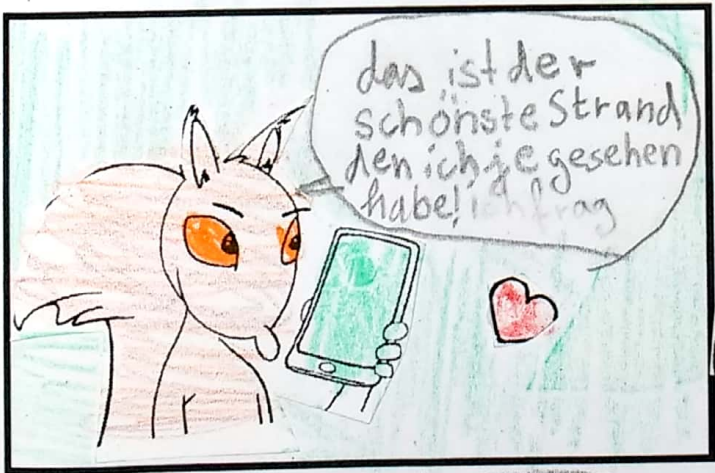 das ist der
schönste Strand
den ich je gesehen
habe! ich frag